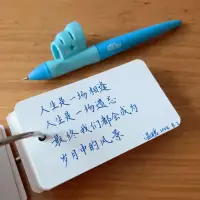 人生是一场相逢
人生是一场遗忘
最终我们都会成为
岁月中的风景